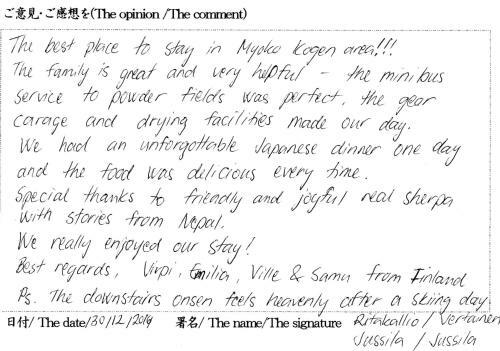 ご意見・ご感想を(The opinion /The comment)
The best place to stay in Myoko Kogen area!!!
The family is great and very helpful – the minibus
service to powder fields was perfect, the gear
garage and drying facilities made our day.
We had an unforgottable Japanese dinner one day
and the food was delicious every time.
Special thanks to friendly and joyful real sherpa
with stories from Nepal.
We really enjoyed our stay!
Best regards, Virpi, Emilia, Ville & Samu from Finland
Ps. The downstairs onsen feels heavenly after a skiing day.
日付/ The date/30/12/2019 署名/ The name/The signature Ritakallio / Vertainen
Jussila / Jussila